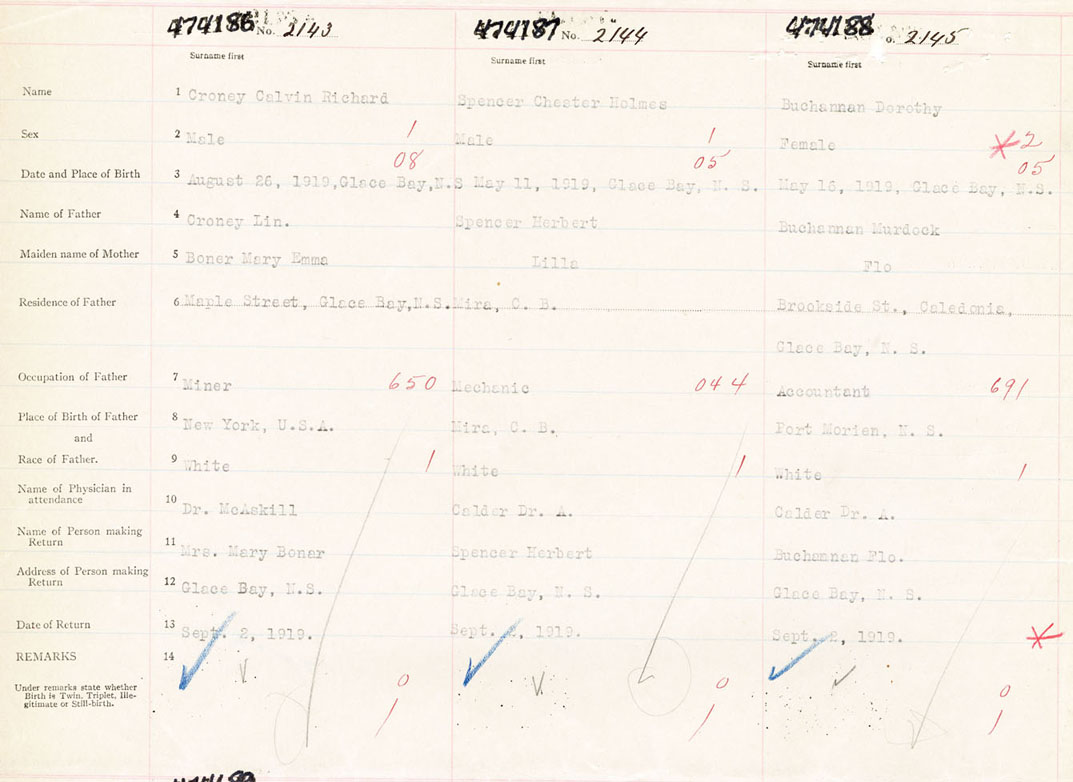 474186 No. 2143 474187 No. 2144 474188 o. 2145
Surname first Surname first Surname first
Name 1 Croney Calvin Richard Spencer Chester Holmes Buchannan Dorothy
Sex 2 Male 1 Male 1 Female 2
08 05 05
Date and Place of Birth 3 August 26, 1919,Glace Bay,N.S May 11, 1919, Glace Bay, N. S. May 16, 1919, Glace Bay, N.S.
Name of Father 4 Croney Lin. Spencer Herbert Buchannan Murdock
Maiden name of Mother 5 Boner Mary Emma Lilla Flo
Residence of Father 6 Maple Street, Glace Bay,N.S. Mira, C. B. Brookside St., Caledonia,
Glace Bay, N. S.
Occupation of Father 7 Miner 650 Mechanic 044 Accountant 691
Place of Birth of Father 8 New York, U.S.A. Mira, C. B. Port Morien, N. S.
and
Race of Father. 9 White 1 White 1 White 1
Name of Physician in
attendance 10 Dr. McAskill Calder Dr. A. Calder Dr. A.
Name of Person making
Return 11 Mrs. Mary Bonar Spencer Herbert Buchannan Flo.
Address of Person making
Return 12 Glace Bay, N.S. Glace Bay, N. S. Glace Bay, N. S.
Date of Return 13 Sept. 2, 1919. Sept. 2, 1919. Sept. 2, 1919.
REMARKS 14
Under remarks state whether
Birth is Twin, Triplet, Ille-
gitimate or Still-birth.
0 0 0
1 1 1